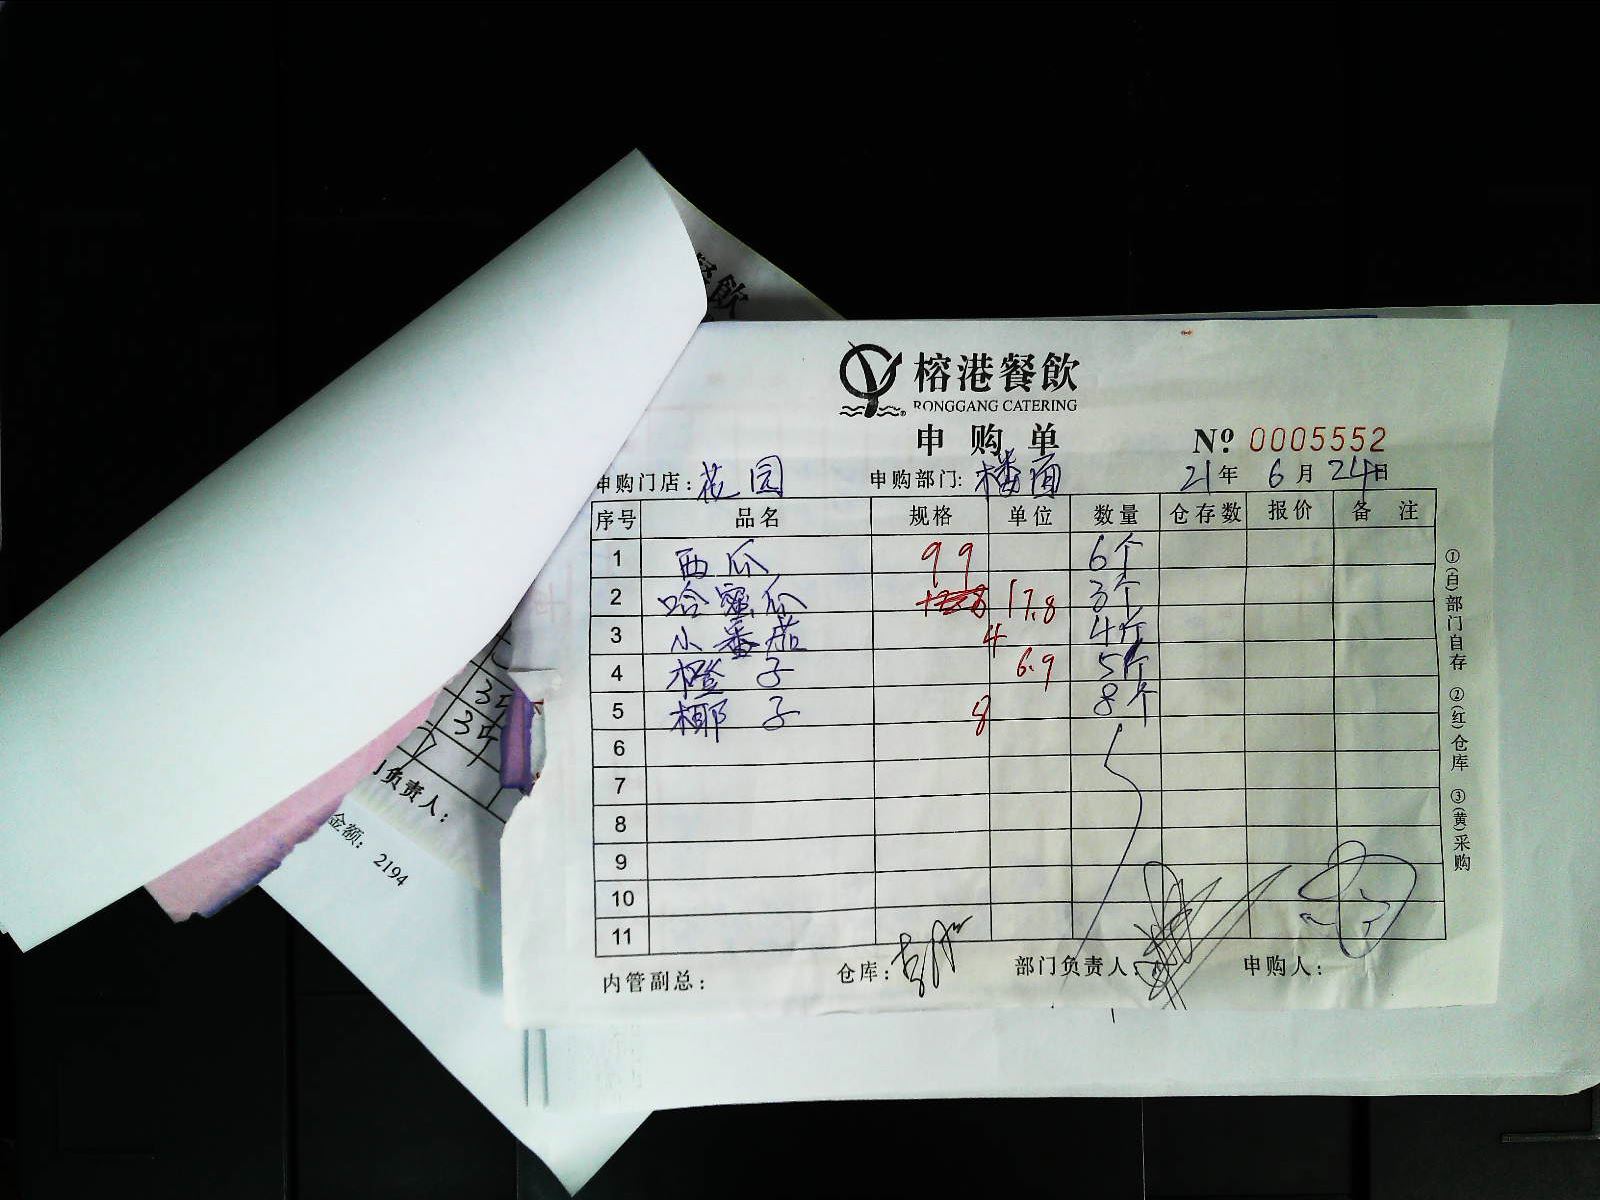 餐飲
榕港餐飲
RONGGANG CATERING
申购单
№ 0005552
申购门店: 花园 申购部门: 楼面 21年 6月 24日
序号 品名 规格 单位 数量 仓存数 报价 备 注
1 西瓜 99 6个
2 哈蜜瓜 17.8 3个
3 小番茄 4 4斤
4 橙子 6.9 5个
5 椰子 8 8个
6
7
8
9
10
11
内管副总: 仓库: 部门负责人: 申购人:
①(白)部门自存 ②(红)仓库 ③(黄)采购
门负责人:
金额: 2194